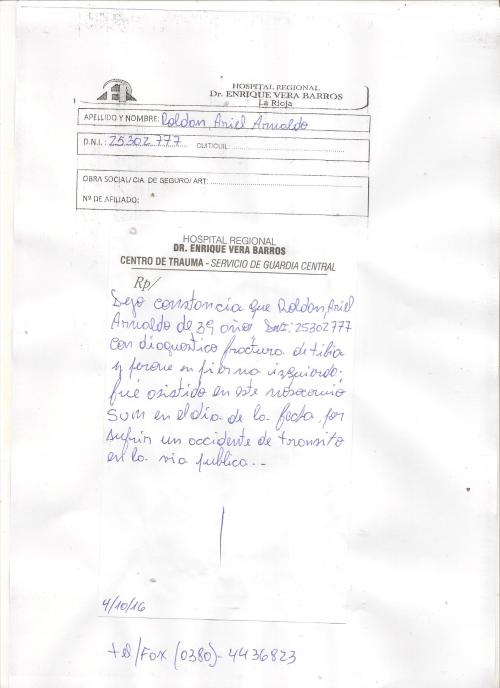 HOSPITAL REGIONAL
Dr. ENRIQUE VERA BARROS
La Rioja
APELLIDO Y NOMBRE: Roldan, Ariel Arnaldo
D.N.I.: 25302777 CUIT/CUIL:
OBRA SOCIAL/ CIA. DE SEGURO/ ART:
Nº DE AFILIADO:
HOSPITAL REGIONAL
DR. ENRIQUE VERA BARROS
CENTRO DE TRAUMA - SERVICIO DE GUARDIA CENTRAL
Rp/
Dejo constancia que Roldan, Ariel
Arnaldo de 39 años DNI: 25302777
con diagnostico fractura de tibia
y perone en pierna izquierda;
fué asistido en este nosocomio
en el día de la fecha, por
sufrir un accidente de transito
en la via publica.-
4/10/16
tel/Fax (0380)-4436823